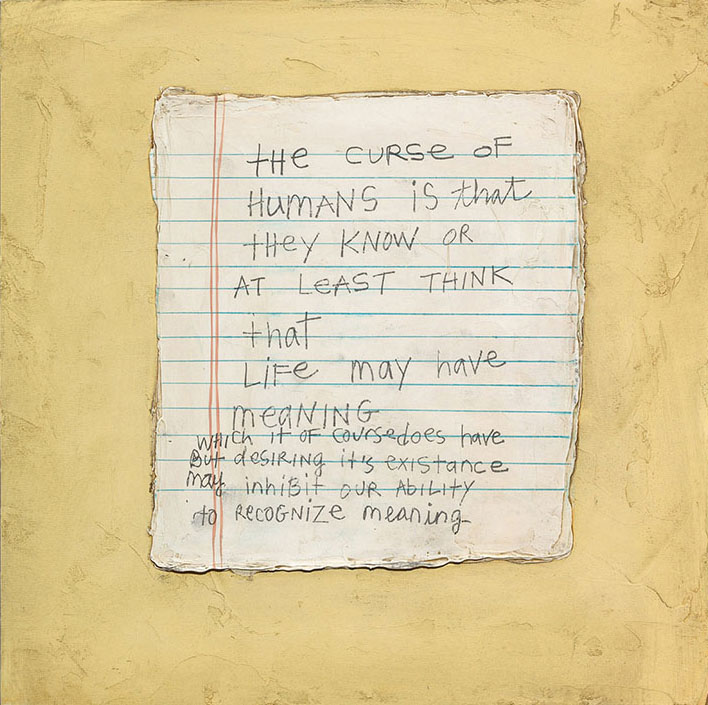 tHe CURSE OF
HUMANS iS that
tHey KNOW OR
AT LEAST THINK
that
LiFe may have
meaNING
WHICh it OF Coursedoes have
But desiRING it's existance
may inhiBit OUR ABiLITY
to RECOGNiZE meaning